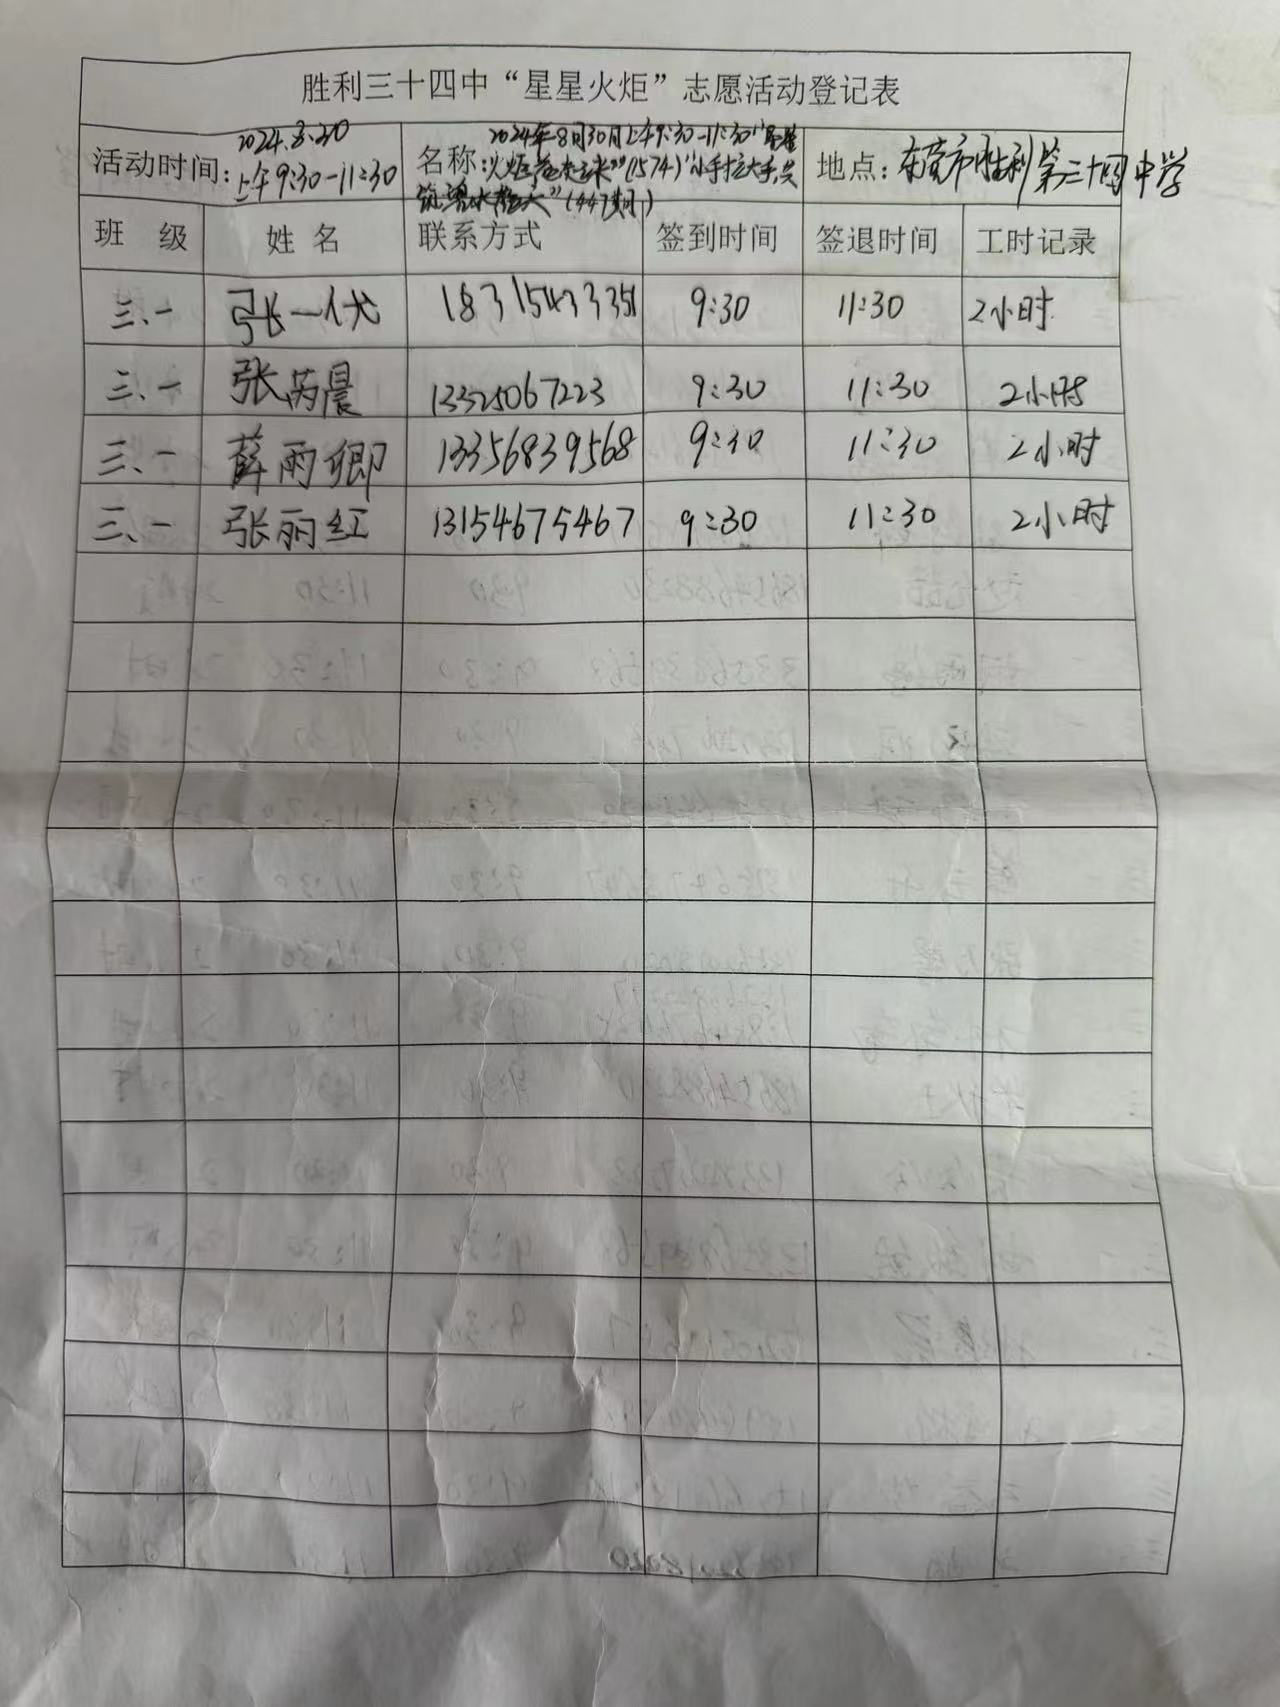 胜利三十四中“星星火炬”志愿活动登记表
活动时间: 2024.8.30 上午9:30-11:30
名称: 2024年8月30日上午9:30-11:30“星星
火炬 (1574)“小手拉大手,共
筑 (447期)
地点: 东营市胜利第三十四中学
班 级 姓 名 联系方式 签到时间 签退时间 工时记录
三、一 张一代 18315433351 9:30 11:30 2小时
三、一 张芮晨 13325067223 9:30 11:30 2小时
三、一 薛雨卿 13356839568 9:30 11:30 2小时
三、一 张丽红 13154675467 9:30 11:30 2小时